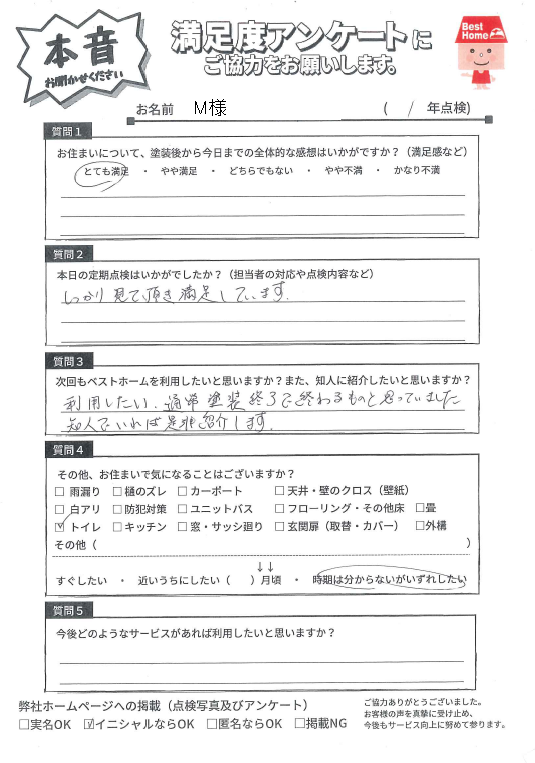 本音
お聞かせください
満足度アンケートに
ご協力をお願いします。
Best Home
お名前 M様 ( / 年点検)
質問1
お住まいについて、塗装後から今日までの全体的な感想はいかがですか？（満足感など）
とても満足 ・ やや満足 ・ どちらでもない ・ やや不満 ・ かなり不満
質問2
本日の定期点検はいかがでしたか？（担当者の対応や点検内容など）
しっかり見て頂き満足しています.
質問3
次回もベストホームを利用したいと思いますか？また、知人に紹介したいと思いますか？
利用したい. 通常塗装終了で終わるものと思っていました
知人でいれば是非紹介します.
質問4
その他、お住まいで気になることはございますか？
□ 雨漏り □ 樋のズレ □ カーポート □ 天井・壁のクロス（壁紙）
□ 白アリ □ 防犯対策 □ ユニットバス □ フローリング・その他床 □ 畳
☑ トイレ □ キッチン □ 窓・サッシ廻り □ 玄関扉（取替・カバー） □ 外構
その他（ ）
↓↓
すぐしたい ・ 近いうちにしたい（ ）月頃 ・ 時期は分からないがいずれしたい
質問5
今後どのようなサービスがあれば利用したいと思いますか？
弊社ホームページへの掲載（点検写真及びアンケート）
□実名OK ☑イニシャルならOK □匿名ならOK □掲載NG
ご協力ありがとうございました。
お客様の声を真摯に受け止め、
今後もサービス向上に努めて参ります。